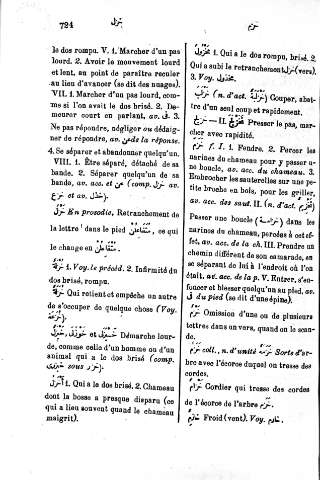 724
خزل
خزم
le dos rompu. V. 1. Marcher d'un pas
lourd. 2. Avoir le mouvement lourd
et lent, au point de paraître reculer
au lieu d'avancer (se dit des nuages).
VII. 1. Marcher d'un pas lourd, com-
me si l'on avait le dos brisé. 2. De-
meurer court en parlant, av. في. 3.
Ne pas répondre, négliger ou dédaig-
ner de répondre, av. عن de la réponse.
4. Se séparer et abandonner quelqu'un.
VIII. 1. Être séparé, détaché de sa
bande. 2. Séparer quelqu'un de sa
bande, av. acc. et عن (comp. خزل av.
خذل, av. خزع).
خزل En prosodie, Retranchement de
la lettre ا dans le pied متفاعلن, ce qui
le change en متفعلن.
خزلة 1. Voy. le précéd. 2. Infirmité du
dos brisé, rompu.
خزلة Qui retient et empêche un autre
de s'occuper de quelque chose (Voy.
خزعة).
خيزلى et خوزلى Démarche lour-
de, comme celle d'un homme ou d'un
animal qui a le dos brisé (comp.
خيزرى sous خزر).
أخزل 1. Qui a le dos brisé. 2. Chameau
dont la bosse a presque disparu (ce
qui a lieu souvent quand le chameau
maigrit).
مخزول 1. Qui a le dos rompu, brisé. 2.
Qui a subi le retranchement خزل (vers).
3. Voy. مخذول.
(n. d'act. ) Couper, abat-
tre d'un seul coup et rapidement.
— II. Presser le pas, mar-
cher avec rapidité.
خزم f. I. 1. Fendre. 2. Percer les
narines du chameau pour y passer u-
ne boucle, av. acc. du chameau. 3.
Embrocher les sauterelles sur une pe-
tite broche en bois, pour les griller,
av. acc. des saut. II. (n. d'act. تخزيم)
Passer une boucle (خزامة) dans les
narines du chameau, percées à cet ef-
fet, av. acc. de la ch. III. Prendre un
chemin différent de son camarade, en
se séparant de lui à l'endroit où l'on
était, av. acc. de la p. V. Entrer, s'en-
foncer et blesser quelqu'un au pied, av.
في du pied (se dit d'une épine).
خزم Omission d'une ou de plusieurs
lettres dans un vers, quand on le scan-
de.
خزم coll., n. d'unité خزمة Sorte d'ar-
bre avec l'écorce duquel on tresse des
cordes.
خزام Cordier qui tresse des cordes
de l'écorce de l'arbre خزم.
خازم Froid (vent). Voy. خارم.